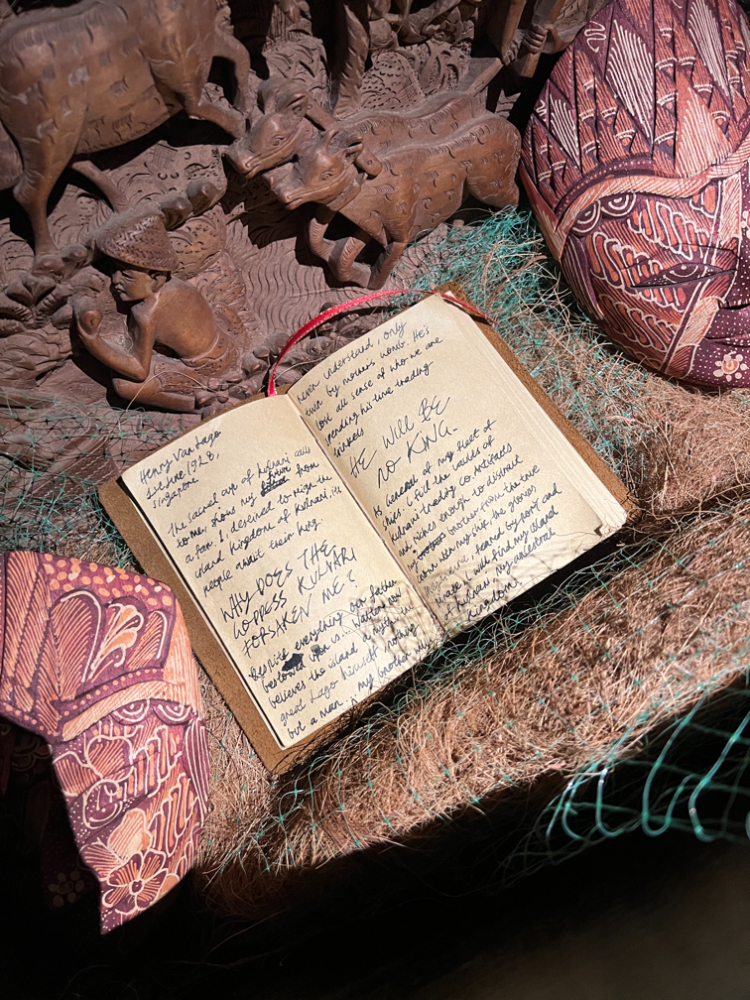 Henry Van Lago
June 1928,
Singapore
The sacred cup of Kulvari calls
to me, shows my future from
a far. I, destined to reign the
island Kingdom of Kulvari, its
people await their king.
WHY DOES THE
GODDESS KULVARI
FORSAKEN ME?
Despite everything our father
bestowed upon us... Watten now
believes the island a myth,
great Lago himself nothing
but a man. My brother
never understand, only
by mothers womb. He's
lost all sense of who we are
spending his time trading
trinkets
HE WILL BE
NO KING.
As General of my fleet of
ships, I fill the vaults of
Kulvari trading co. Artifacts
and riches enough to distract
my brother from the true
my trip, the glorious
feared by port and
will find my island
my ancestral
Kingdom.